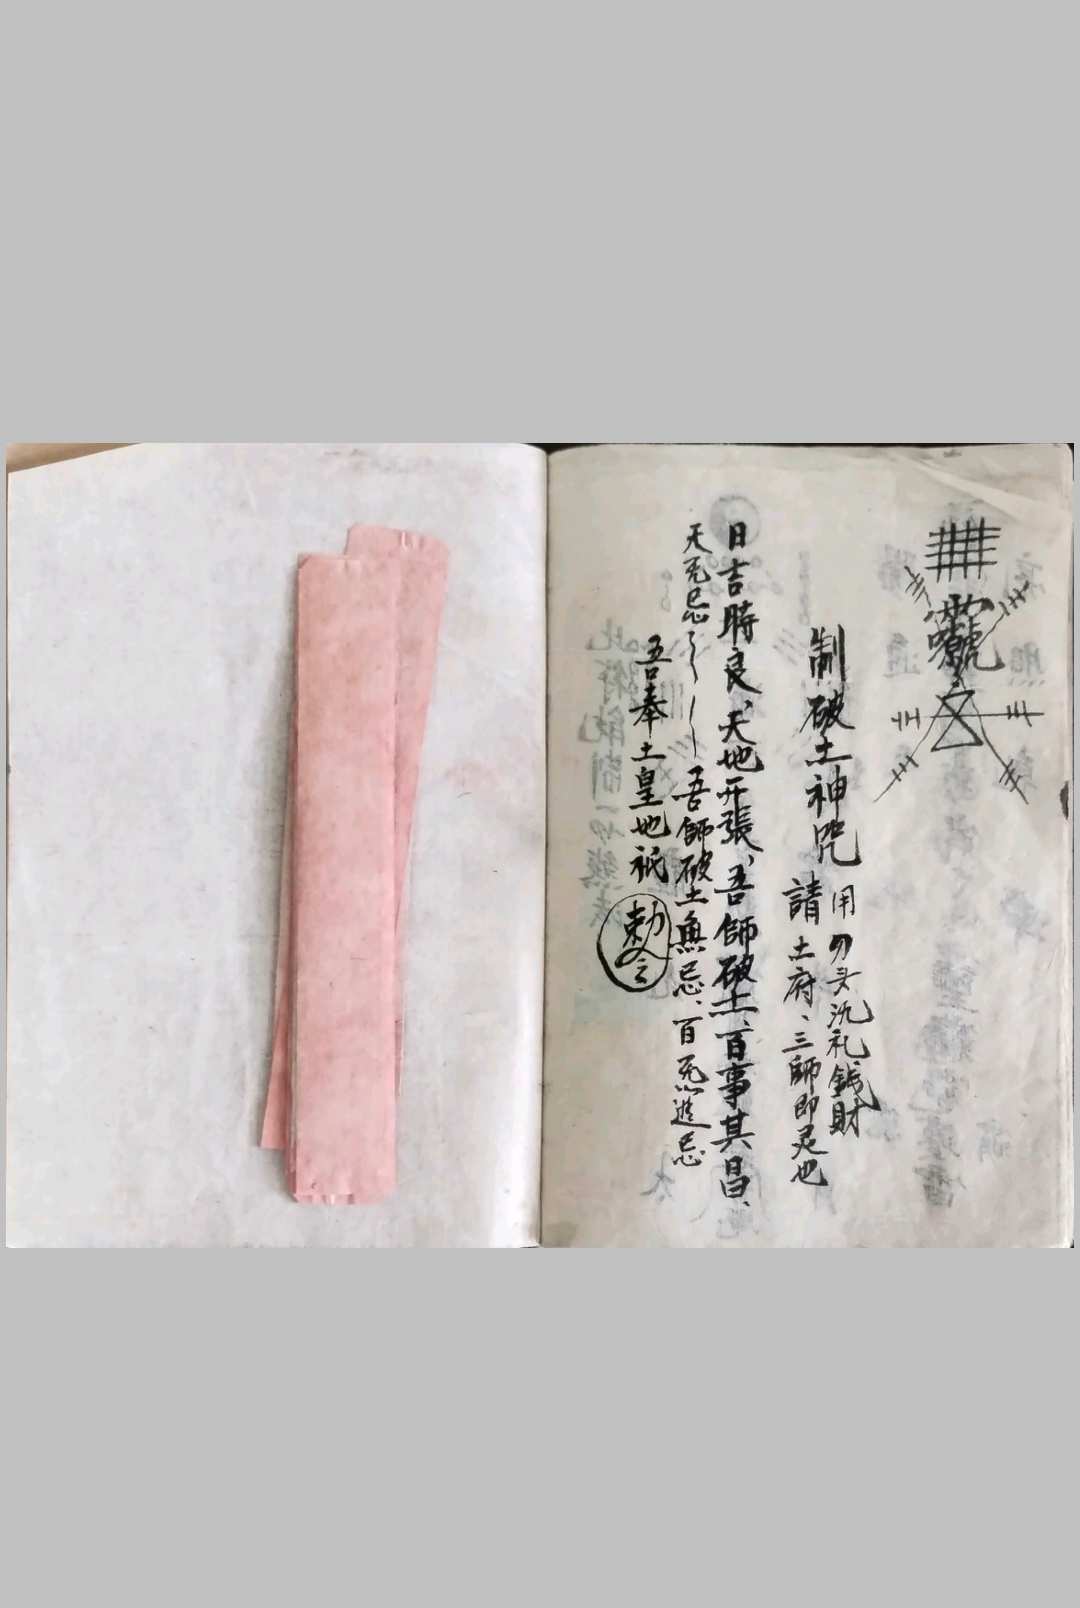 制破土神咒
用刀头沉礼钱財
請土府、三師即灵也
日吉時良、天地开張、吾師破土、百事其昌、
天无忌
吾師破土無忌、百无進忌
吾奉土皇地祇
勅令